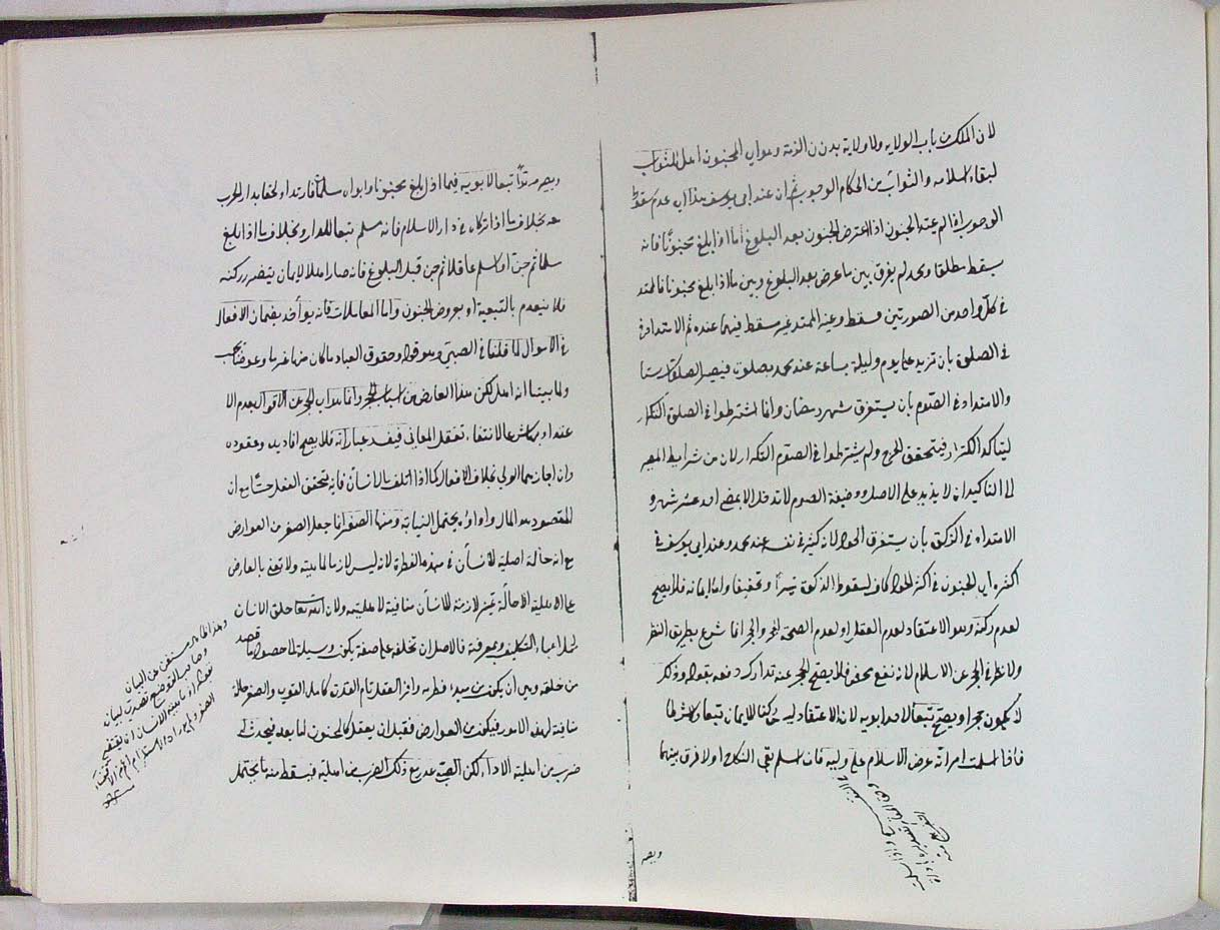 لان الملك من باب الولاية ولا ولاية بدون الذمة وهو اي المجنون اهل للثواب
لبقاء اسلامه والثواب من احكام الوجوب ثم ان عند ابى يوسف هذا اي عدم سقوط
الوجوب اذا لم يمتد الجنون اذا اعترض الجنون بعد البلوغ اما اذا بلغ مجنونا فانه
يسقط مطلقا ومحمد لم يفرق بين ما عرض بعد البلوغ وبين ما اذا بلغ مجنونا فالممتد
في كل واحد من الصورتين مسقط وغير الممتد غير مسقط فيهما عنده ثم الامتداد
في الصلوة بان تزيد على يوم وليلة بساعة عند محمد بصلوة فيصير الصلوات ستا
والامتداد في الصوم بان يستغرق شهر رمضان وانما اشترطوا في الصلوة التكرار
ليتأكد الكثرة فيتحقق الحرج ولم يشترطوا في الصوم التكرار لان من شرايط المصير
الى التأكيد ان لا يزيد على الاصل ووظيفة الصوم لا تدخل الا بمضي احد عشر شهرا و
الامتداد في الزكوة بان يستغرق الحول لانه كثير في نفسه عند محمد وعند ابى يوسف في
اكثره اي الجنون في اكثر الحول كاف لسقوط الزكوة تيسيرا وتخفيفا واما ايمانه فلا يصح
لعدم ركنه وهو الاعتقاد لعدم العقل او لعدم الصحة للحجر والحجر انما شرع بطريق النظر
ولا نظر في الحجر عن الاسلام لانه نفع محض فلا يصح الحجر عنه تداركه دفعه بقوله وذلك
لا يكون حجرا ويصح تبعا لاحد ابويه لان الاعتقاد ليس ركنا للايمان تبعا ولا شرطا
فاذا اسلمت امراته عرض الاسلام على وليه فان اسلم بقي النكاح اولا فرق بينهما
ويصير
ويصير مرتدا تبعا لابويه فيما اذا بلغ مجنونا وابواه مسلمان فارتدا ولحقا بدار الحرب
معه بخلاف ما اذا تركاه في دار الاسلام فانه مسلم تبعا للدار وبخلاف ما اذا بلغ
مسلما ثم جن او اسلم عاقلا ثم جن قبل البلوغ فانه صار اهلا للايمان بتقرر ركنه
فلا ينعدم بالتبعية او بعروض الجنون واما المعاملات فانه يؤاخذ بضمان الافعال
في الاموال لما قلنا في الصبي وهو قوله وحقوق العباد ما كان منها غرما وعوضا يجب
ولما بينا انه اهل لكن هذا العارض من اسباب الحجر وانما هو اي الحجر عن الاقوال لعدم الا
عتداد بها شرعا لانتفاء تعقل المعاني فيفسد عباراته فلا يصح اقاريره وعقوده
وان اجازهما الولي بخلاف الافعال كما اذا اتلف مال انسان فانه يتحقق الفعل حسا مع ان
المقصود هو المال واداؤه يحتمل النيابة ومنها الصغر انما جعل الصغر من العوارض
مع انه حالة اصلية للانسان في مبدء الفطرة لانه ليس لازما لماهيته ولا نعني بالعارض
على الاهلية الا حالة غير لازمة للانسان منافية لاهليته ولان الله تعا خلق الانسان
لحمل اعباء التكليف ومعرفته فالاصل ان يخلقه على صفة يكون وسيلة لحصول ما قصد
من خلقه وهي ان يكون من مبدء فطرته وافر العقل تام القدرة كامل القوى والصغر حالة
منافية لهذه الامور فيكون من العوارض فقبل ان يعقل كالمجنون اما بعده فيحدث له
ضرب من اهلية الاداء لكن الصبي عذر مع ذلك الضرب من اهلية فيسقط منه ما يحتمل